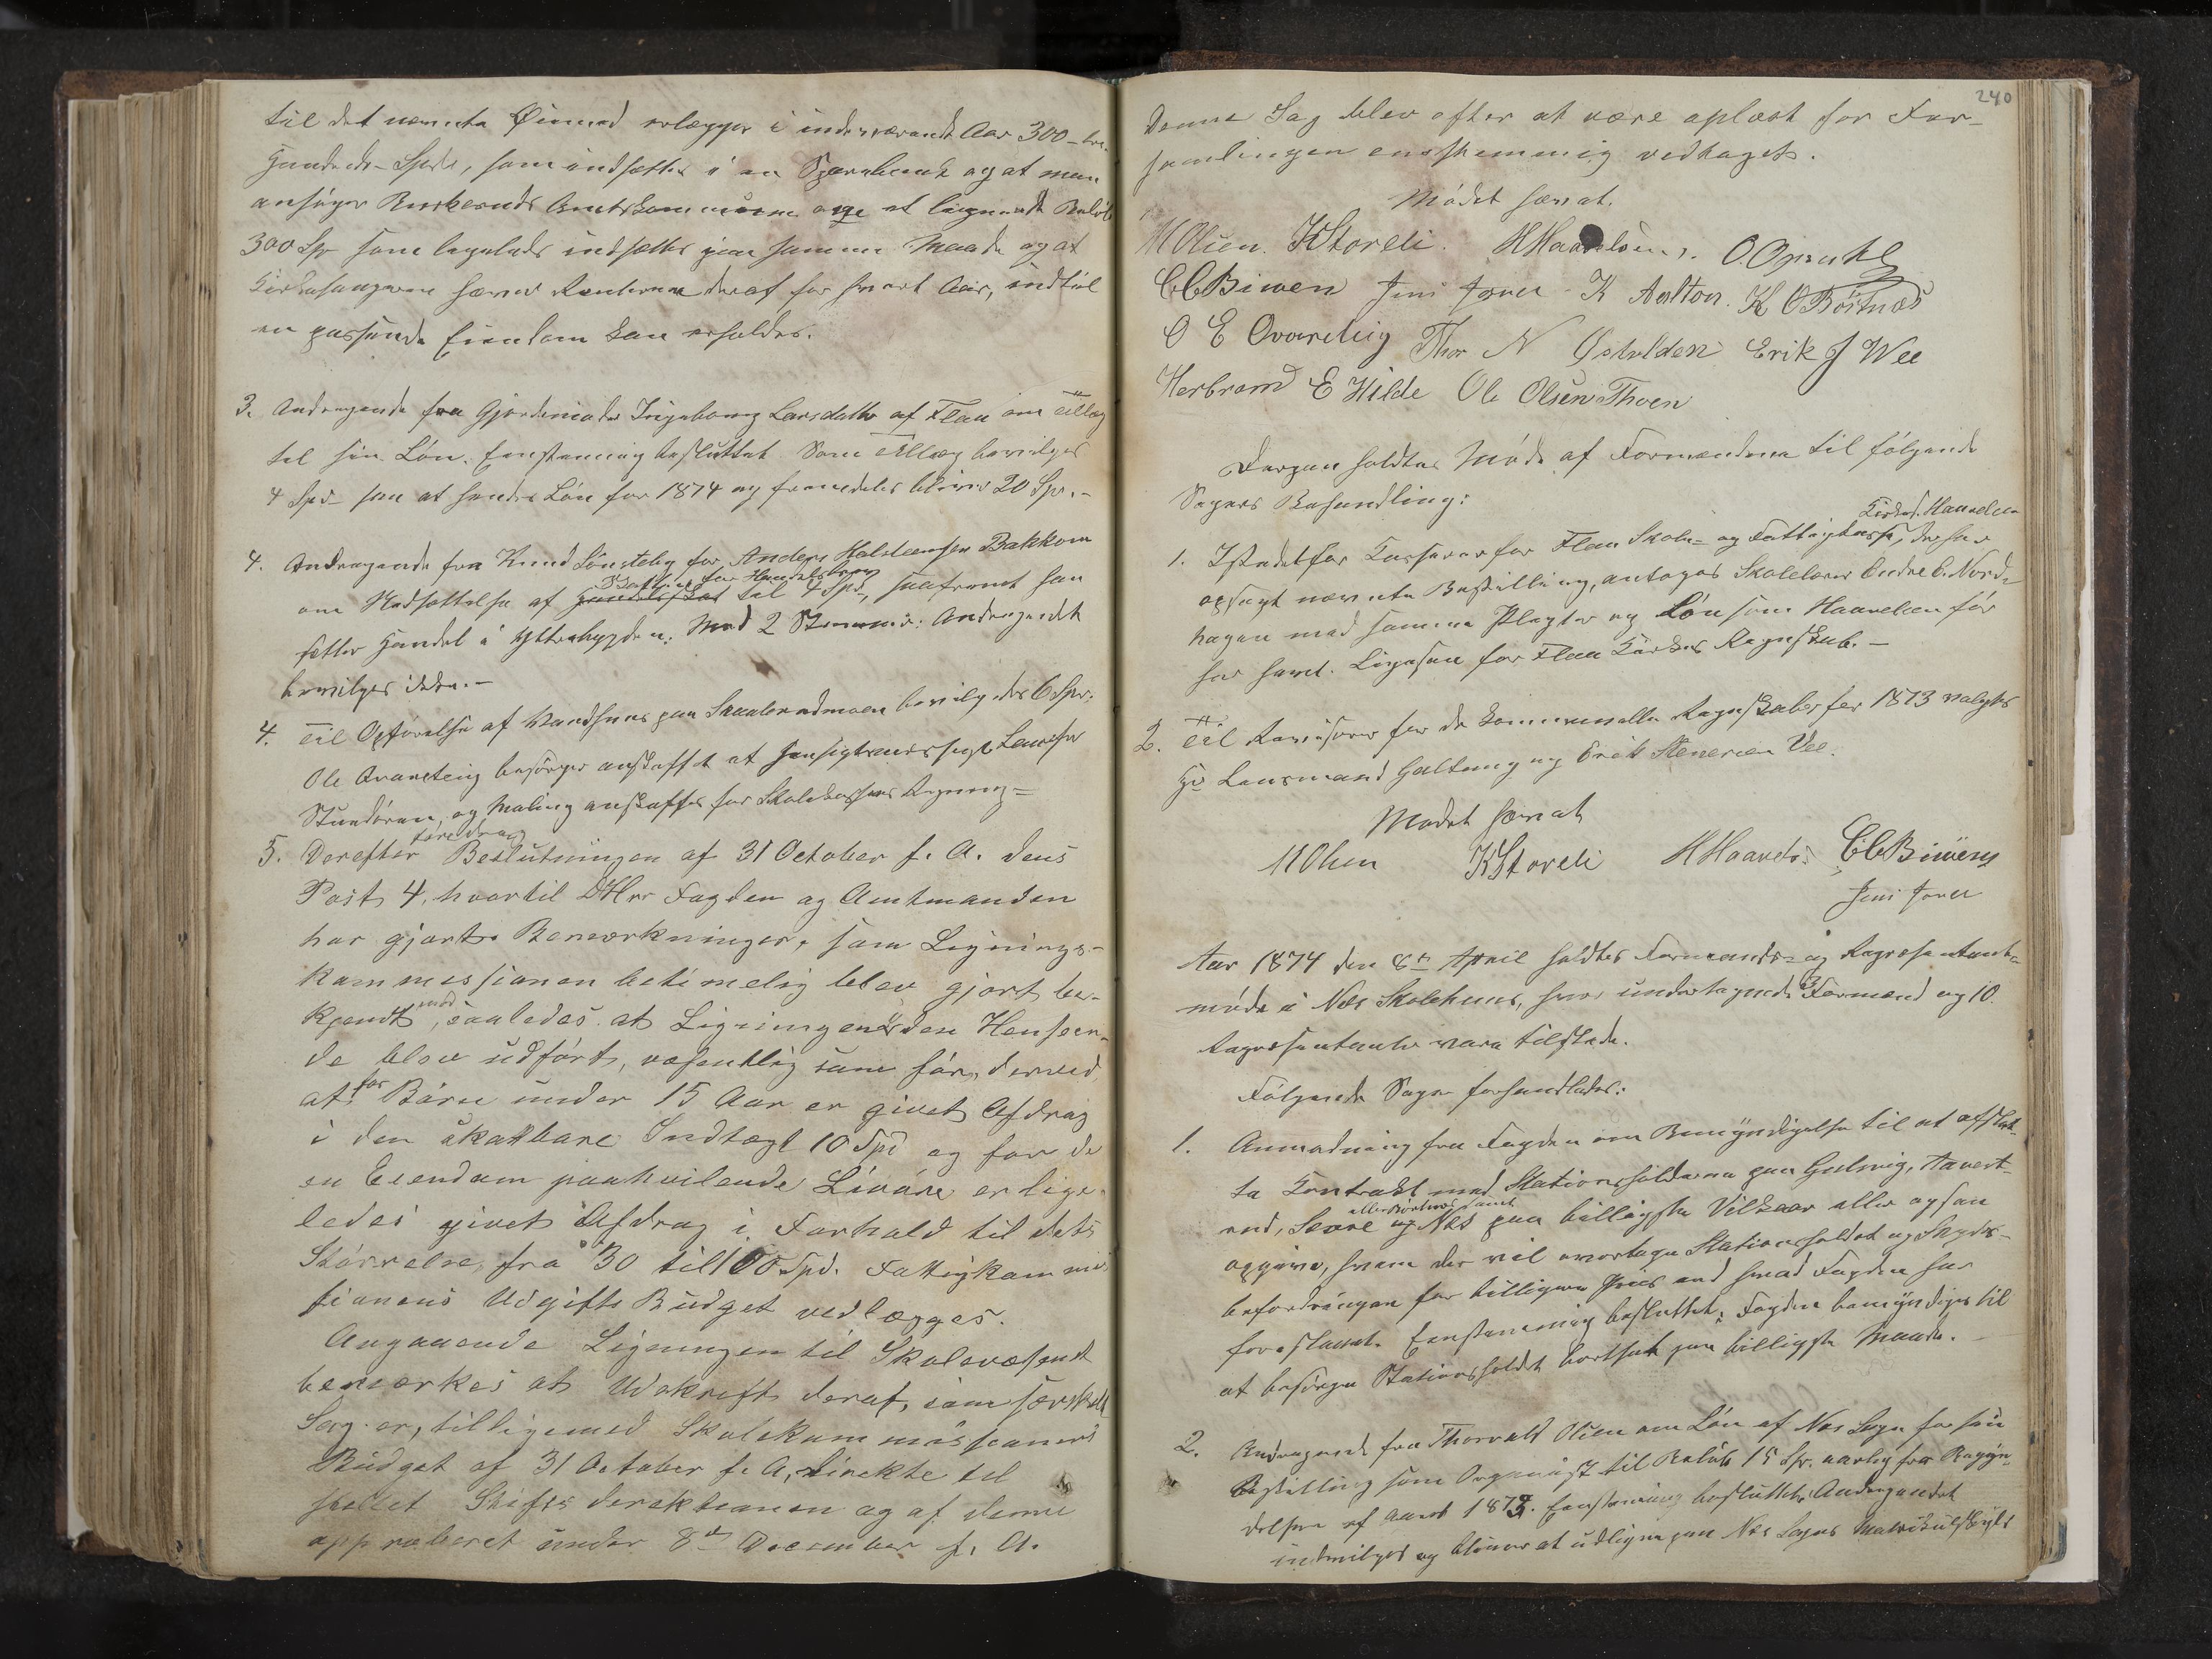 til det nævnte Øiemed erlægger i indeværende Aar 300 - tre
Hundrede - Speds, som indsættes i en Sparebank og at man
ansøger Buskeruds Amtskommune om et lignende Beløb
300 Spd som ligeledes indsættes paa samme Maade og at
Kirkesangeren hæver Renterne deraf for hvert Aar, indtil
en passende Eiendom kan erholdes.
3. Andragende fra Gjordemoder Ingeborg Larsdatter af Flaa om Tillæg
til sin Løn. Eenstemmig besluttet Som Tillæg bevilges
4 Spd saa at hendes Løn for 1874 og fremdeles bliver 20 Spd.-
4. Andragende fra Knud Lønsteby for Anders Halstensen Bakkom
for Handelsbrev
om Nedsættelse af til 4 Spd, saafremt han
sætter Handel i Ytterbygden. Med 2 Stemmer: Andragendet
bevilges ikke.-
4. Til Opførelse af Vandhuus paa bevilgedes 6 Spd.
Ole besørger anskaffet et
og Maling anskaffes for Skolekassens Regning =
foredrag
5. Derefter Beslutningen af 31 October f. A. dens
Post 4, hvortil DHrr Fogden og Amtmanden
har gjort Bemærkninger, som Lignings-
kommissionen betimelig blev gjort be-
med
kjendt, saaledes at Ligningen i den Henseen-
de blev udført, væsentlig som før, derved
for
at Børn under 15 Aar er givet Afdrag
i den skatbare Indtægt 10 Spd og for de
en Eiendom paahvilende Livøre er lige-
ledes givet Afdrag i Forhold til dets
Størrelse, fra 30 til 100 Spd. Fattigkommis-
sionens Udgifts Budget vedlægges.
Angaaende Ligningen til Skolevæsenet
bemærkes at Udskrift deraf, som særskilt
Sag er, tilligemed Skolekommissionens
Budget af 31 October f. A, direkte til
stillet Stiftsdirektionen og af denne
approberet under 8de December f. A.
240
Denne Sag blev efter at være oplæst for For-
samlingen eensstemmig vedtaget.
Mødet hævet.
M Olsen. K Storeli. H Haavelsen. O. Opsahl
C C Biwen Jens K Aalton. K O Børtnæs
O E Qvareteig Thor N Østelden Erik J Wee
Herbrand E Hilde Ole Olsen Thoen
Derpaa holdtes Møde af Formændene til følgende
Sagers Behandling:
Kirkes. Haavelsen
1. Istedetfor Kasserer for Flaa Skole- og Fattigkasse, der har
opsagt nævnte Bestilling, antoges Skolelærer Endre C. Nord-
hagen med samme Pligter og Løn som Haavelsen før
har havt. Ligesaa for Flaa Kirkes Regnskab. -
2. Til Revisorer for de kommunelle Regnskaber for 1873 valgtes
Hr Lensmand Galtung og Erik Stenersen Vee.
Mødet hævet
M Olsen K Storeli H Haavels. C C Biwen
Jens
Aar 1874 den 8de April holdtes Formands- og Repræsentant-
møde i Næs Skolehuus, hvor undertegnede 3 Formænd og 10
Repræsentanter vare tilstede.
Følgende Sager forhandledes:
1. Anmodning fra Fogden om Bemyndigelse til at afslut-
te Kontrakt med Stationsholderne paa Gulsvig, Aavest-
eller Børtnæs samt
rud, Sevre og Næs paa billigste Vilkaar eller ogsaa
opgive, hvem der vil overtage Stationsholdet og Skyds-
befordringen for billigere Priis end hvad Fogden har
foreslaaet. Eenstemmig besluttet: Fogden bemyndiges til
at besørge Stationsholdet bortsat paa billigste Maade. -
2. Andragende fra Thorvald Olsen om Løn af Næs Sogn for sin
Bestilling som Organist til Beløb 15 Spd. aarlig fra Begyn-
delsen af Aaret 1873. Eenstemmig besluttet: Andragendet
indvilges og bliver at udligne paa Næs Sogns Matrikulskyld